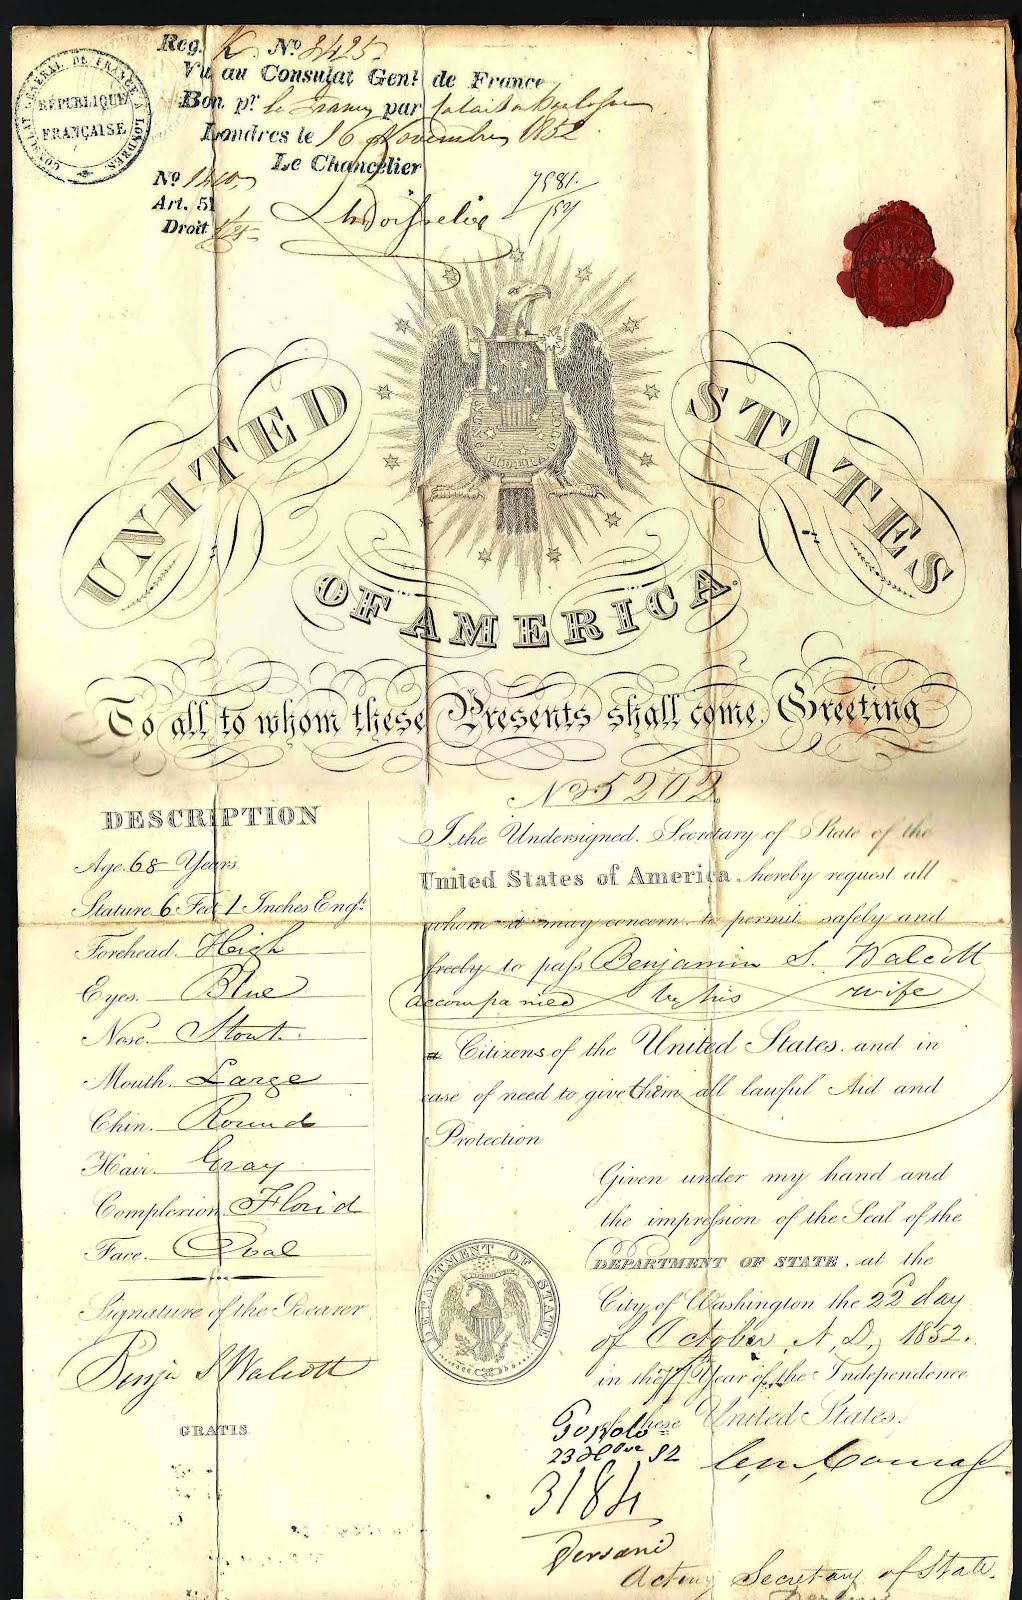 Reg. K No 2425
Vu au Consulat Genl de France
Bon pr la France par Calais ou Boulogne
Londres le 16 Novembre 1852
Le Chancelier
CONSULAT GÉNÉRAL DE FRANCE À LONDRES
RÉPUBLIQUE
FRANÇAISE
No
Art. 51
Droit
7581.
UNITED STATES
OF AMERICA.
To all to whom these Presents shall come, Greeting
No 5202.
DESCRIPTION
Age. 68 Years
Stature 6 Feet 1 Inches Engh.
Forehead. Heigh
Eyes. Blue
Nose. Stout.
Mouth. Large
Chin. Round
Hair. Gray
Complexion Florid
Face. Oval
Signature of the Bearer
Benja S Walcott
GRATIS
I, the Undersigned. Secretary of State of the
United States of America. hereby request all
whom it may concern. to permit safely and
freely to pass Benjamin S. Walcott
accompanied by his wife
a Citizens of the United States. and in
case of need to give them all lawful Aid and
Protection
Given under my hand and
the impression of the Seal of the
DEPARTMENT OF STATE. at the
City of Washington the 22 day
of October, A. D., 1852.
in the 77 Year of the Independence
of these United States.
DEPARTMENT OF STATE
23 52
3184
Acting Secretary of State.